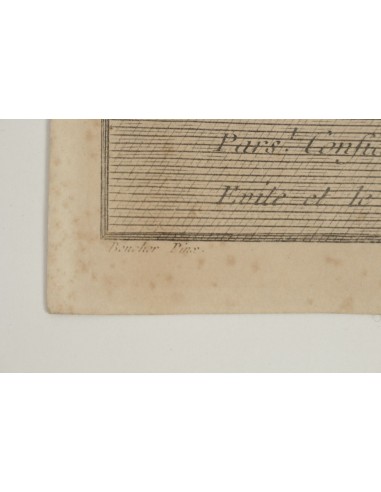 Pars! Confie
Evite et le
Boucher Pinx.